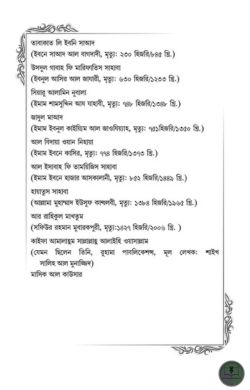 তাবাকাত লি ইবনি সাআদ
(ইবনে সাআদ আল বাগদাদী, মৃত্যু: ২৩০ হিজরি/৮৪৫ খ্রি.)
উসদুল গাবাহ ফি মারিফাতিস সাহাবা
(ইবনুল আসির আল জাযারী, মৃত্যু: ৬৩০ হিজরি/১২৩৩ খ্রি.)
সিয়ারু আলামিন নুবালা
(ইমাম শামসুদ্দিন আয যাহাবী, মৃত্যু: ৭৪৮ হিজরি/১৩৪৮ খ্রি.)
জাদুল মাআদ
(ইমাম ইবনুল কাইয়্যিম আল জাওযিয়্যাহ, মৃত্যু: ৭৫১হিজরি/১৩৫০ খ্রি.)
আল বিদায়া ওয়ান নিহায়া
(ইমাম ইবনে কাসির, মৃত্যু: ৭৭৪ হিজরি/১৩৭৩ খ্রি.)
আল ইসাবাহ ফি তাময়িজিস সাহাবা
(ইমাম ইবনে হাজার আসকালানী, মৃত্যু: ৮৫২ হিজরি/১৪৪৯ খ্রি.)
হায়াতুস সাহাবা
(আল্লামা মুহাম্মাদ ইউসুফ কান্ধলবী, মৃত্যু: ১৩৮৪ হিজরি/১৯৬৫ খ্রি.)
আর রাহিকুল মাখতুম
(সফিউর রহমান মুবারকপুরী, মৃত্যু:১৪২৭ হিজরি/২০০৬ খ্রি. )
কাইফা আমালাহুম সাল্লাল্লাহু আলাইহি ওয়াসাল্লাম
(যেমন ছিলেন তিনি, রুহামা পাবলিকেশন্স, মূল লেখক: শাইখ
সালিহ আল মুনাজ্জিদ)
মাসিক আল কাউসার